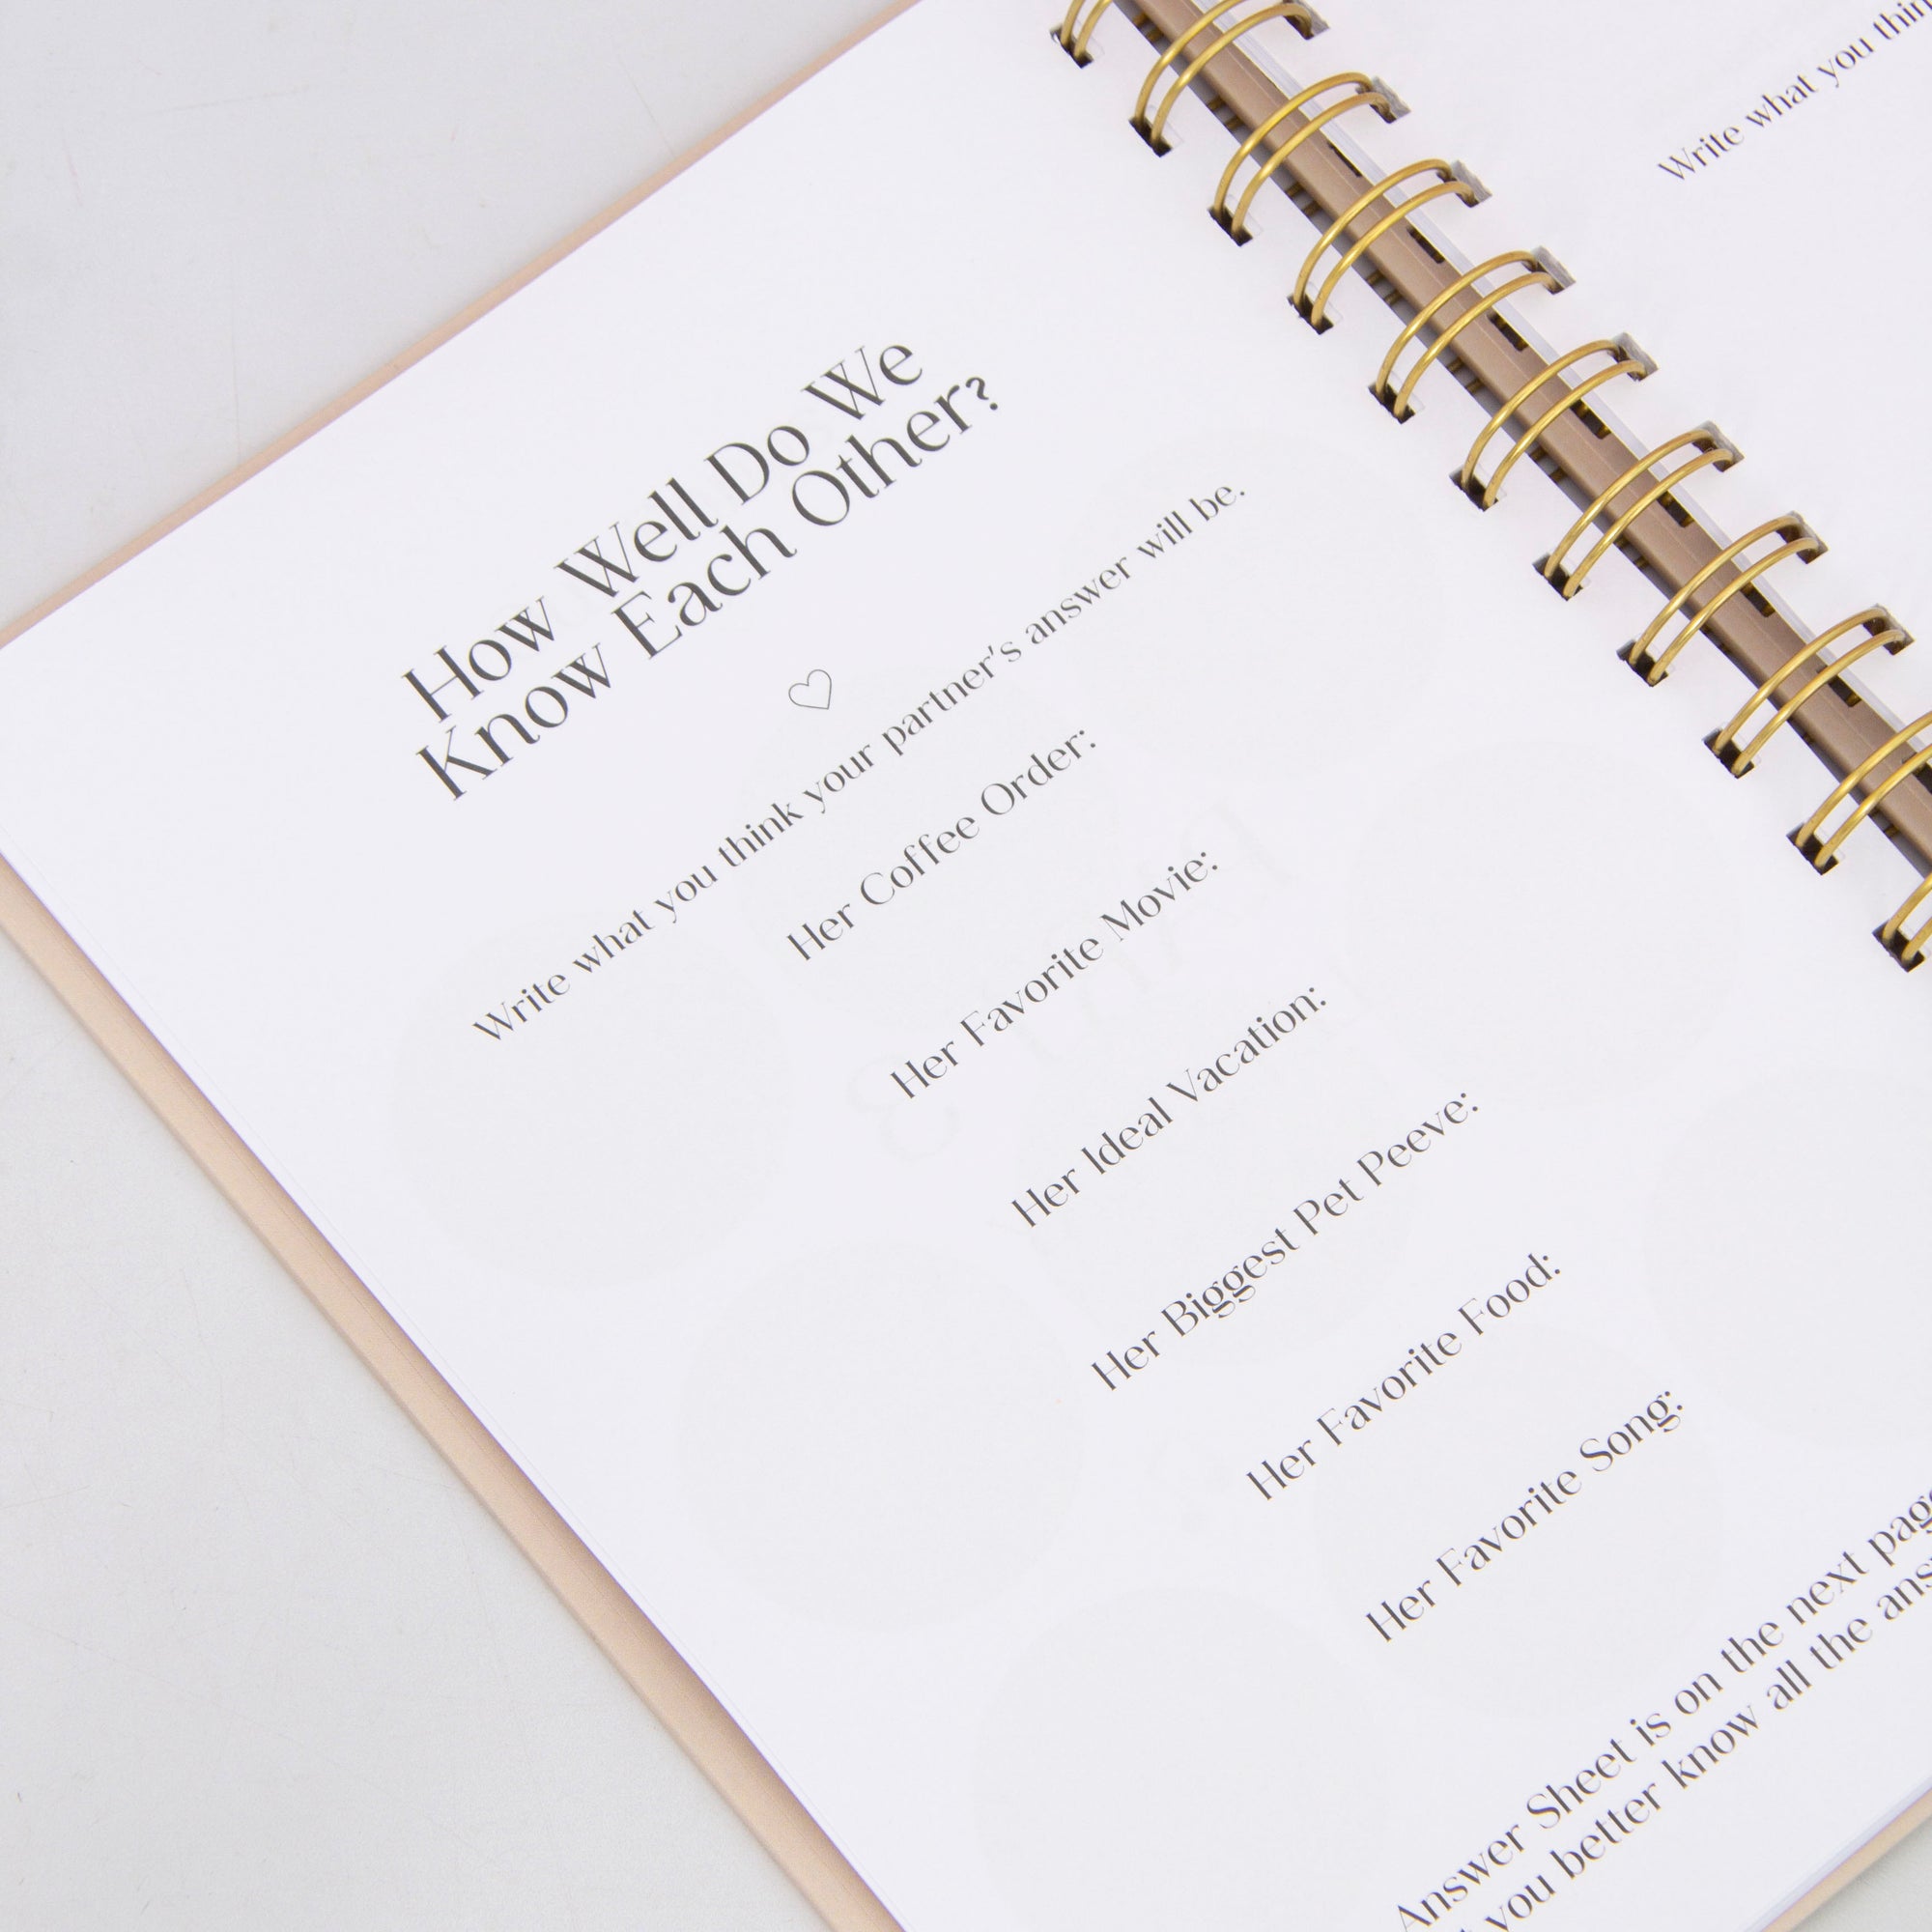 How Well Do We
Know Each Other?
Write what you think your partner's answer will be.
Her Coffee Order:
Her Favorite Movie:
Her Ideal Vacation:
Her Biggest Pet Peeve:
Her Favorite Food:
Her Favorite Song:
Answer Sheet is on the next
you better know all the
Write what you